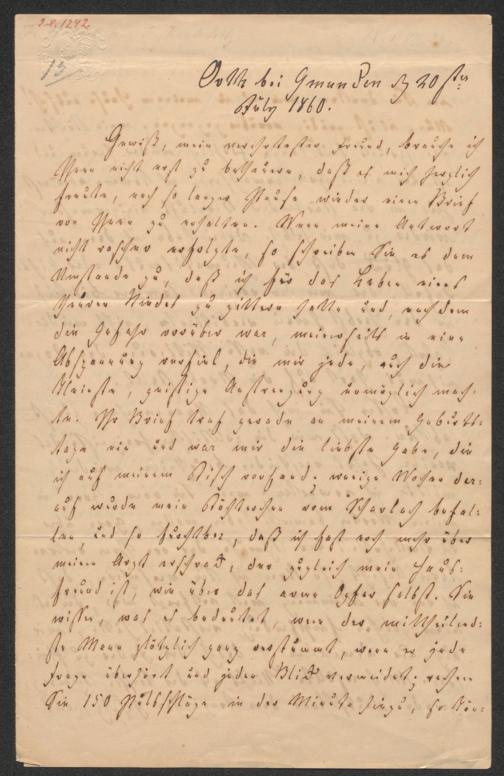 I. N. 1242
13
Orth bei Gmunden d 20sten
July 1860.
Gewiß, mein verehrtester Freund, brauche ich
Ihnen nicht erst zu betheuern, daß es mich herzlich
freute, nach so langer Pause wieder einen Brief
von Ihnen zu erhalten. Wenn meine Antwort
nicht rascher erfolgte, so schreiben Sie es dem
Umstande zu, daß ich für das Leben eines
theuren Kindes zu zittern hatte und, nachdem
die Gefahr vorüber war, meinerseits in eine
Abspannung verfiel, die mir jede, auch die
kleinste, geistige Anstrengung unmöglich mach-
te. Ihr Brief traf gerade an meinem Geburts-
tage ein und war mir die liebste Gabe, die
ich auf meinem Tisch vorfand; wenige Wochen dar-
auf wurde mein Töchterchen vom Scharlach befal-
len, und so furchtbar, daß ich fast noch mehr über
meinen Arzt erschrak, der zugleich mein Haus-
freund ist, wie über das arme Opfer selbst. Sie
wissen, was es bedeutet, wenn der mittheilend-
ste Mann plötzlich ganz verstummt, wenn er jede
Frage überhört und jeden Blick vermeidet; rechnen
Sie 150 Pulsschläge in der Minute hinzu, so kön-